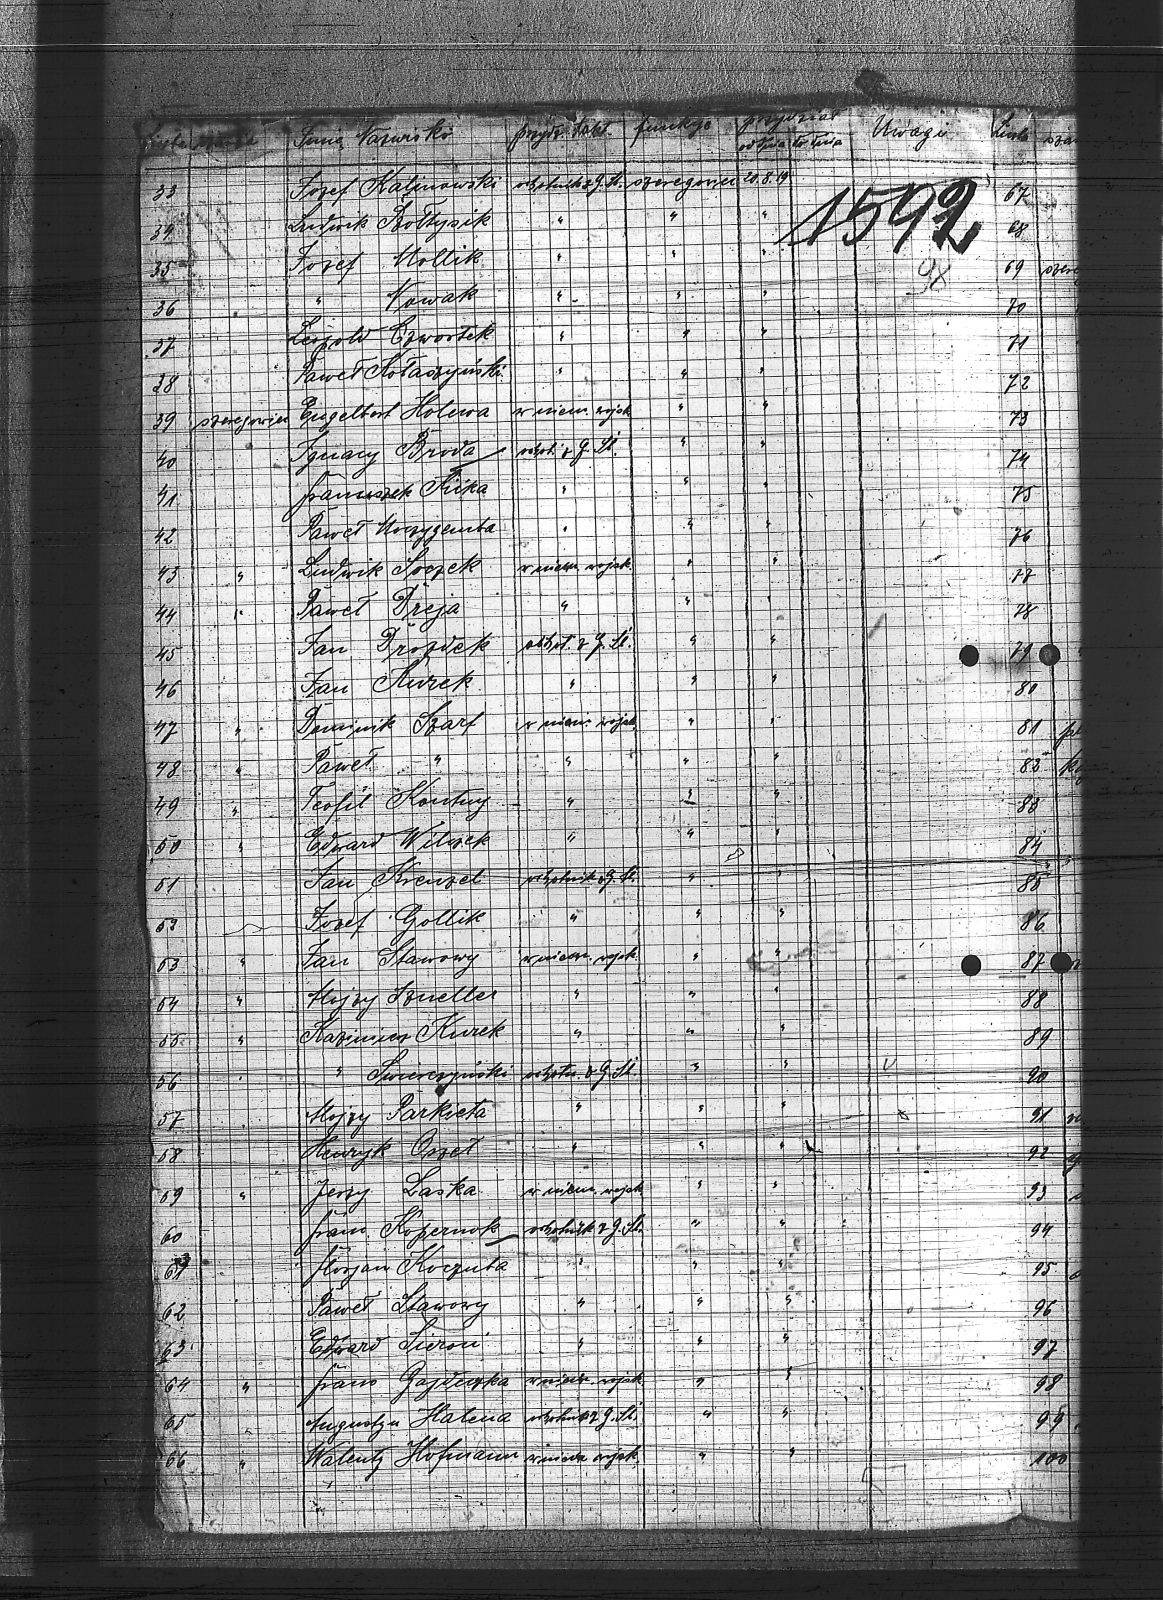 Liczba Imię Nazwisko funkcja przydział Uwaga Liczba
od dnia do dnia
33 Jozef Kalinowski ochotnik z G. Śl. szeregowiec 20.8.19 67
1592
34 Ludwik Bołtysik " " " 68
35 Jozef Mollik " " " 69
98
36 " Nowak " " " 70
37 Leopold Czwortek " " " 71
38 Paweł Kołaczyński " " " 72
39 szeregowiec Engelbert Holewa w niem. wojsk. " " 73
40 Ignacy Broda ochot. z G. Śl. " " 74
41 Franciszek Kika " " " 75
42 Paweł Moczygemba " " " 76
43 " Ludwik Soczek w niem. wojsk. " " 77
44 " Paweł Dreja " " " 78
45 Jan Drozdek ochot. z G. Śl. " " 79
46 Jan Kurek " " " 80
47 " Dominik Szarf w niem. wojsk. " " 81
48 " Paweł " " " " 82
49 " Teofil Kontny " " " 83
50 " Edward Wilczek " " " 84
51 Jan Krenzel ochotnik z G. Śl. " " 85
52 Jozef Gollik " " " 86
53 " Jan Stawowy w niem. wojsk. " " 87
54 " Alojzy Szueller " " " 88
55 " Kazimierz Kurek " " " 89
56 " Swierczyński ochotn. z G. Śl. " " 90
57 Alojzy Parkieta " " " 91
58 Henryk Orzeł " " " 92
59 " Jerzy Laska w niem. wojsk. " " 93
60 Franc. Kopernok ochotnik z G. Śl. " " 94
61 Florjan Koczuba " " " 95
62 Paweł Stawowy " " " 96
63 Edward Sieroń " " " 97
64 " Franc Gajduczka w niem. wojsk. " " 98
65 Augustyn Halena ochotnik z G. Śl. " " 99
66 " Walenty Hofmann w niem. wojsk. " " 100